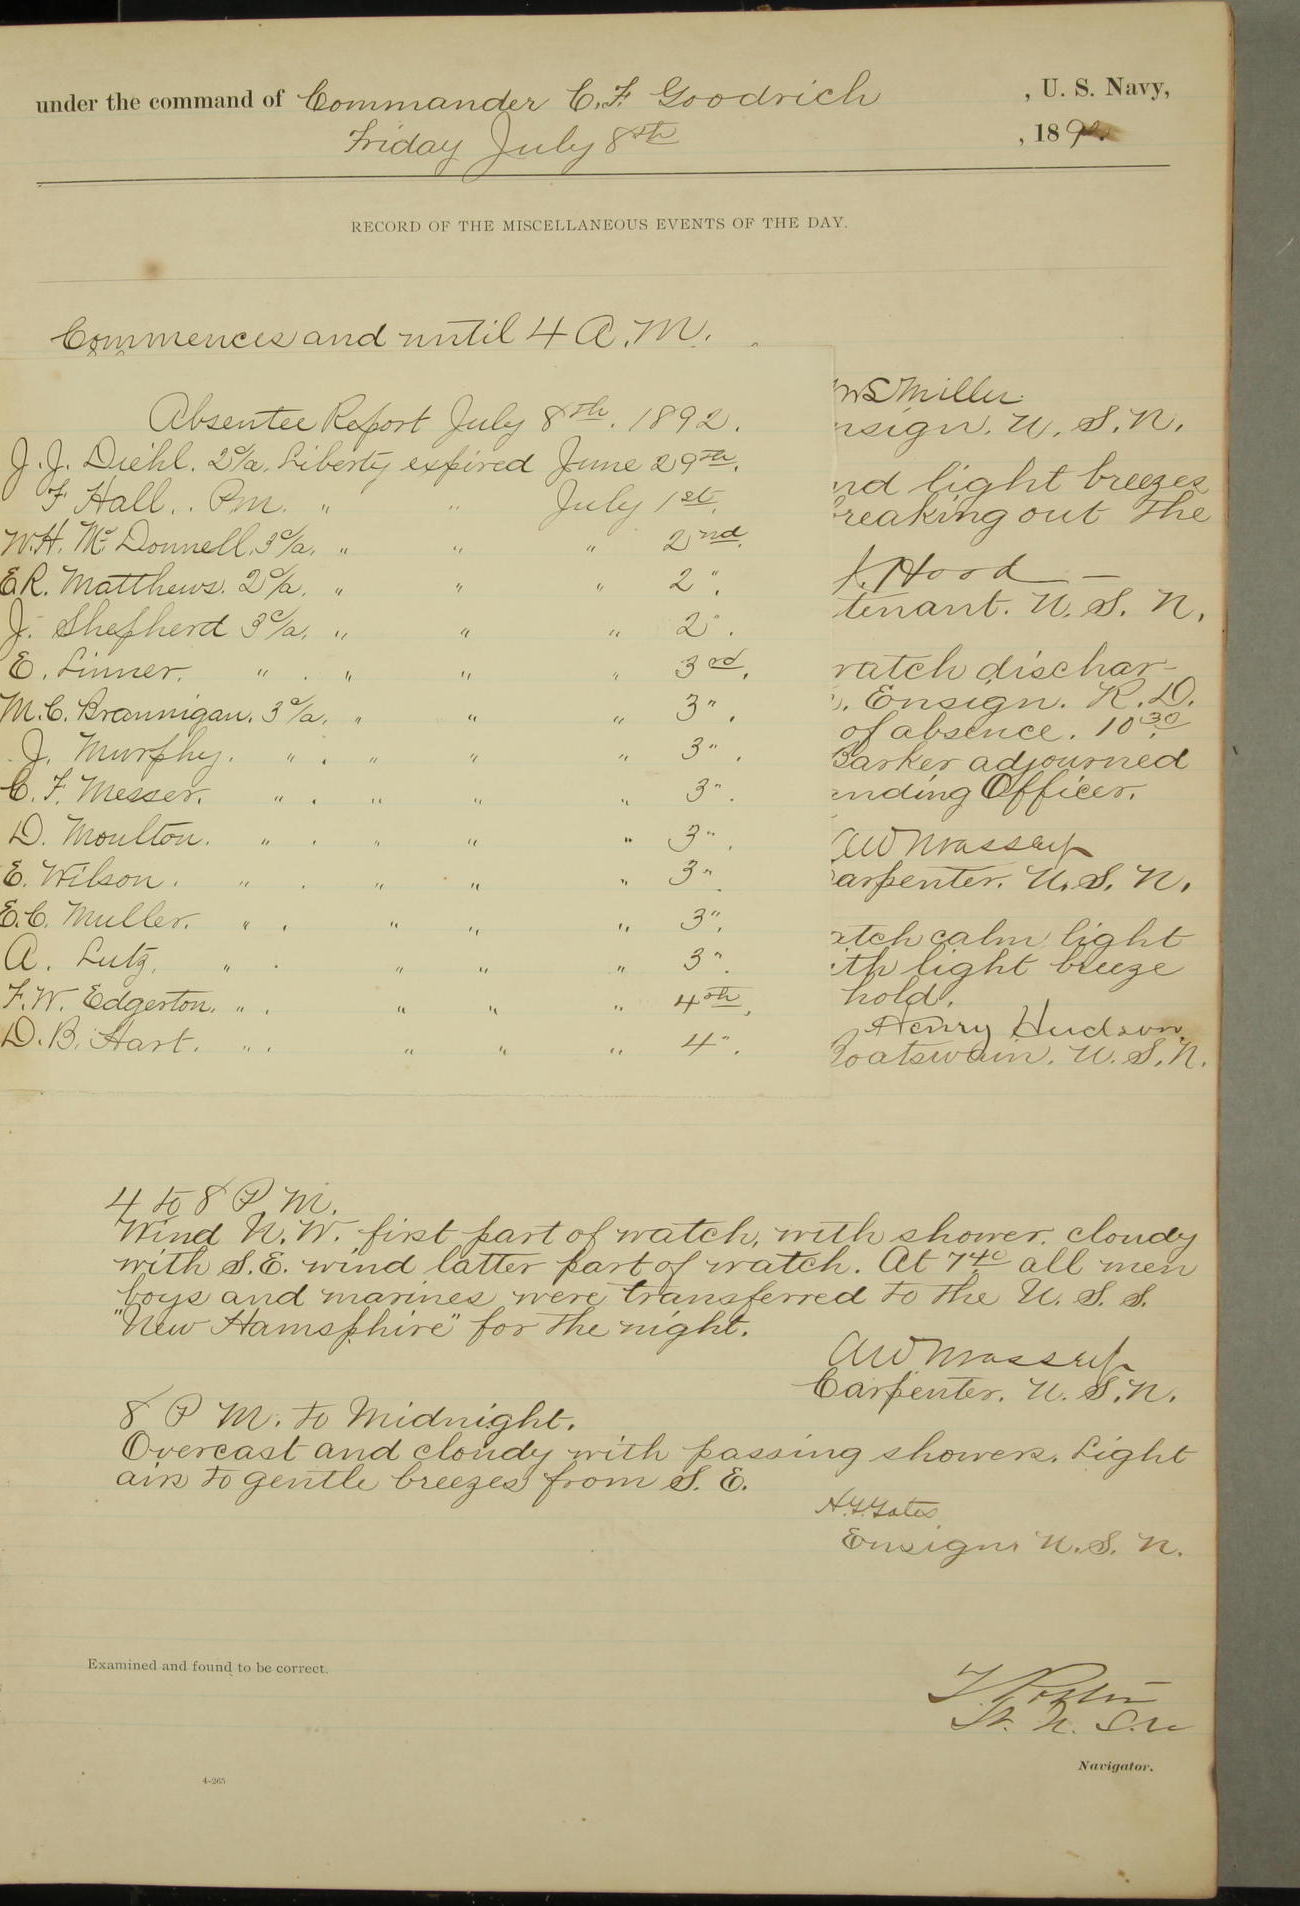 under the command of Commander C. F. Goodrich , U. S. Navy,
Friday July 8th , 189
RECORD OF THE MISCELLANEOUS EVENTS OF THE DAY.
Commences and until 4 A. M.
Miller
nsign. U. S. N.
nd light breezes
reaking out the
Hood
tenant. U. S. N.
watch dischar-
Ensign. R. D.
of absence. 10 30
Barker adjourned
ending Officer.
arpenter. U. S. N.
atch calm light
ith light breeze
hold.
Henry Hudson
Boatswain. U. S. N.
Absentee Report July 8th. 1892.
J. J. Diehl. 2c/a. Liberty expired June 29th.
F Hall. . P.m. " " July 1st.
W. H. Mc Donnell. 3c/a. " " " 2nd.
E R. Matthews. 2c/a. " " " 2 ".
J. Shepherd 3c/a. " " " 2 ".
E. Linner. " . " " " 3rd.
M. C. Brannigan. 3c/a. " " " 3 ".
J. Murphy. " . " " " 3 ".
C. F. Messer. " . " " " 3 ".
D. Moulton. " . " " " 3 ".
E. Wilson. " . " " " 3 ".
E. C. Muller. " . " " " 3 ".
A. Lutz. " . " " " 3 ".
F. W. Edgerton. " . " " " 4th.
D. B. Hart. " . " " " 4 ".
4 to 8 P M.
Wind N. W. first part of watch, with shower. cloudy
with S. E. wind latter part of watch. At 7 40 all men
boys and marines were transferred to the U. S. S.
"New Hamsphire" for the night.
Carpenter. U. S. N.
8 P M. to Midnight.
Overcast and cloudy with passing showers. Light
airs to gentle breezes from S. E.
Ensign U. S. N.
Examined and found to be correct.
Navigator.
4-265